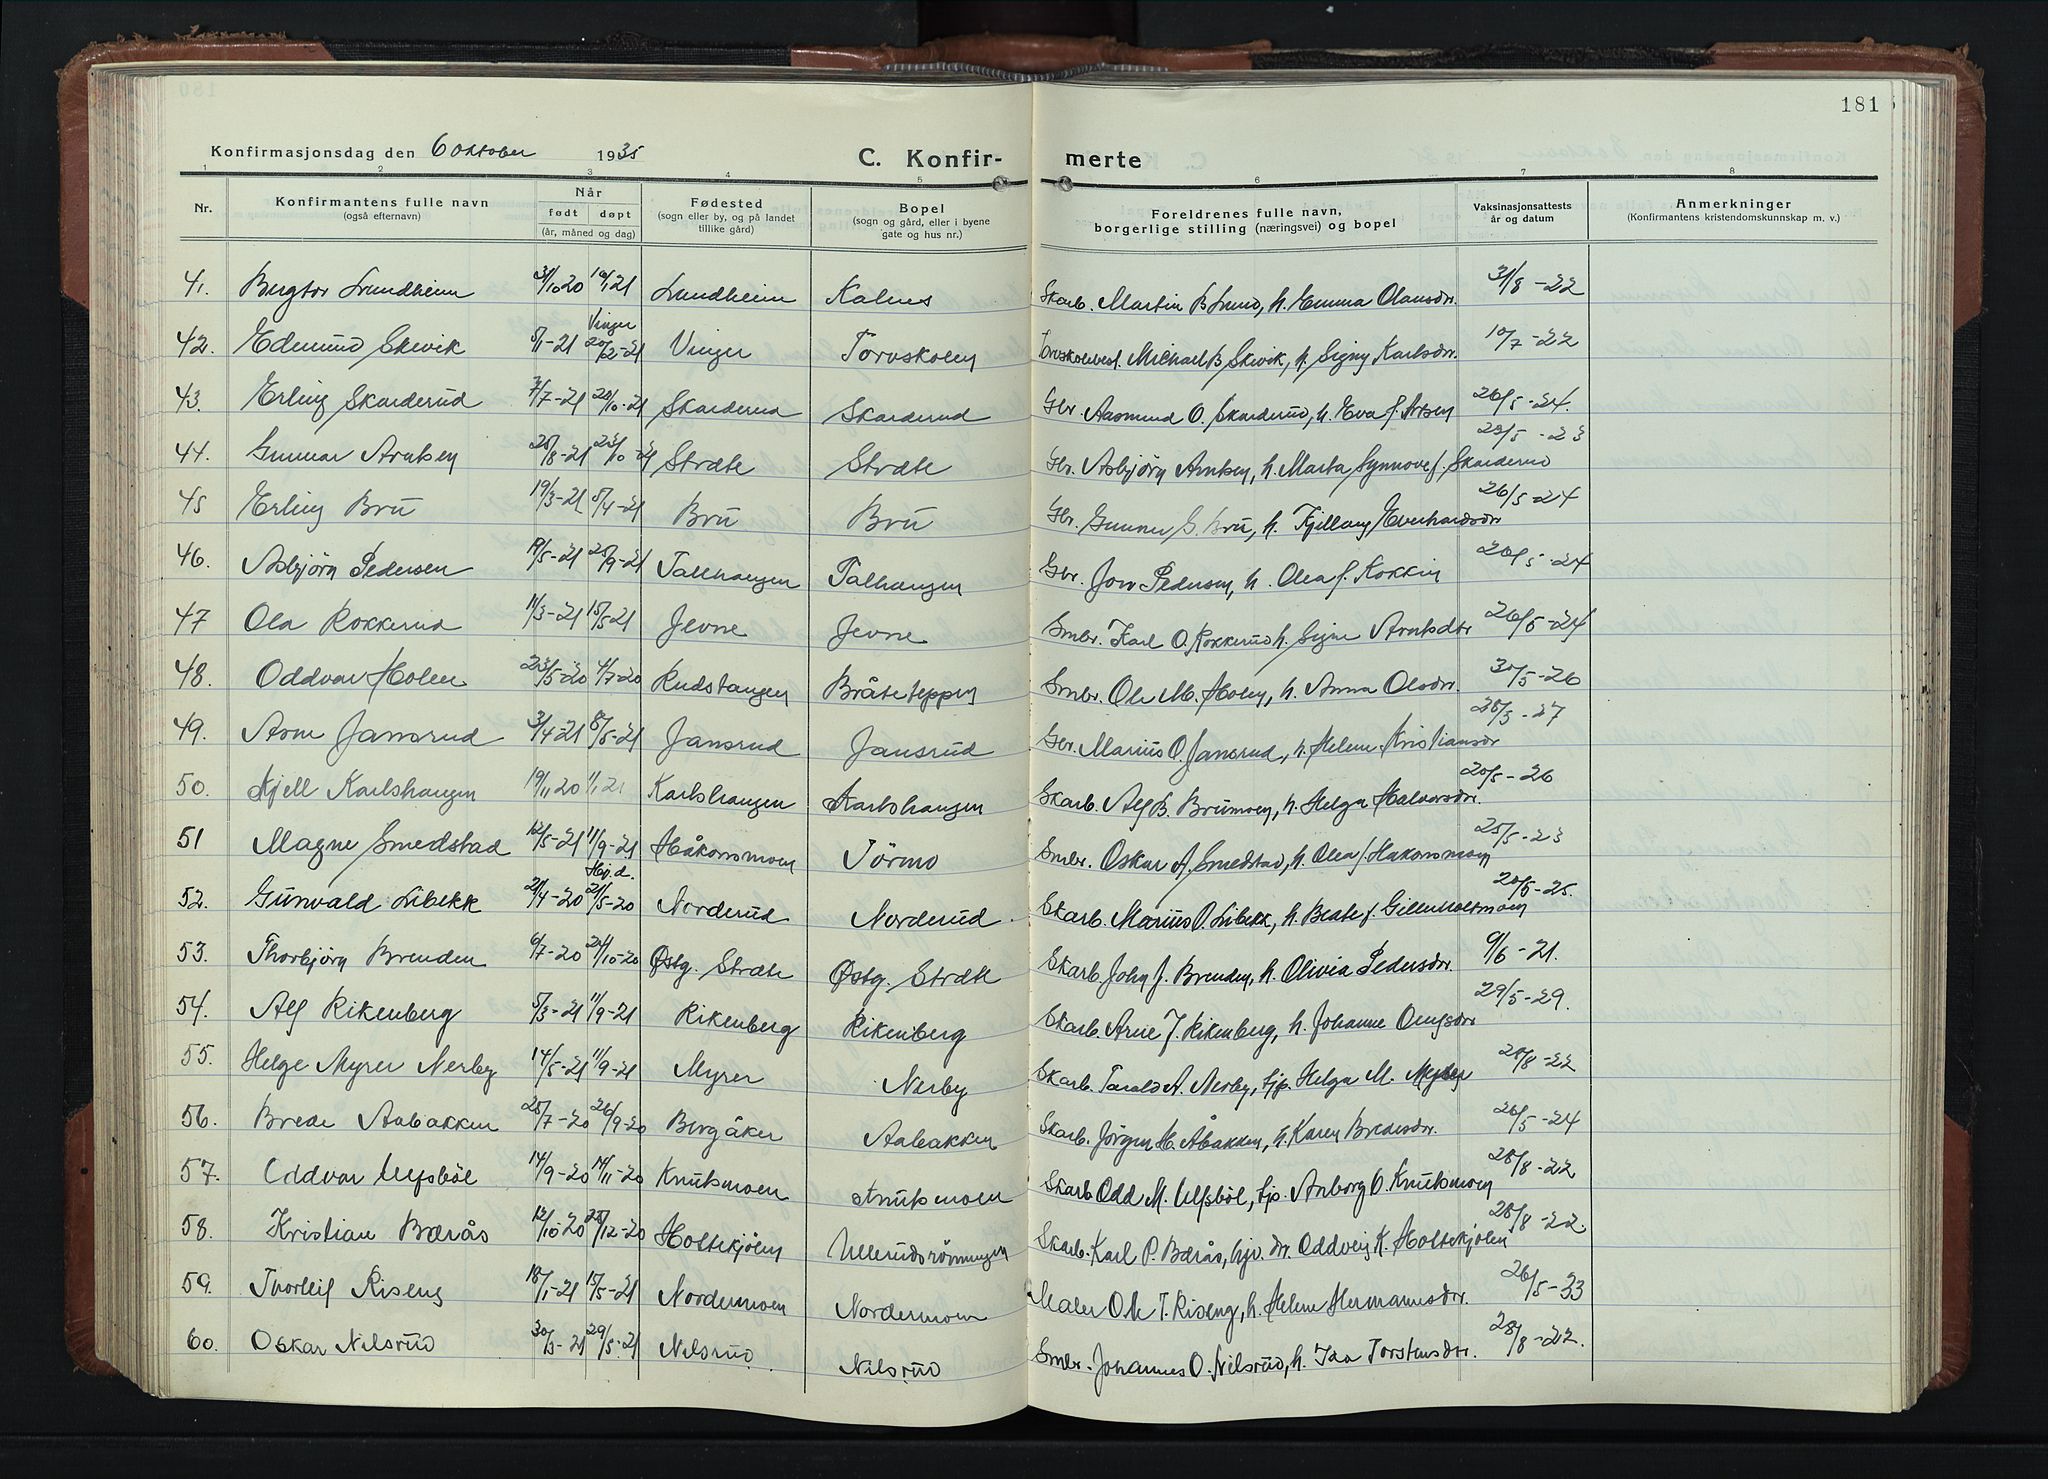 181
Konfirmasjonsdag den 6 oktober 1935
C. Konfir-merte
1 2 3 4 5 6 7 8
Nr. Konfirmantens fulle navn (også efternavn) Når født døpt (år, måned og dag) Fødested (sogn eller by, og på landet tillike gård) Bopel (sogn og gård, eller i byene gate og hus nr.) Foreldrenes fulle navn, borgerlige stilling (næringsvei) og bopel Vaksinasjonsattests år og datum Anmerkninger (Konfirmantens kristendomskunnskap m. v.)
41. Bergtor Lundheim 31/10 20 Lundheim Kalnes Skarb. Martin B. Lund, h. Emma Olausdr. 31/8-22
42. Edmund Skivik 5/1-21 Vinger 20/2-21 Vinger Torvskolen Michael B. Skivik, h. Signy Karlsdr. 10/7-22
43. Erling Skarderud 7/7-21 20/10-21 Skarderud Skarderud Gbr. Aasmund O. Skarderud, h. Eva f. 26/5-24.
44. Gunnar Arntsen 28/8-21 23/10-21 Stræte Stræte Gbr. Asbjörn Arntsen, h. Marta Synnove f. Skarderud 28/5-23
45 Erling Brü 19/3-21 5/4-21 Brü Brü Gbr. Gunner G. Brü, h. Fjellaug Everhardsdr 26/5-24
46. Asbjörn Pedersen 19/5-21 25/9-21 Talhaugen Talhaugen Gbr. Jon Pedersen, h. Olea f. Kokkin 26/5-24
47 Ola Rokkerud 11/3-21 15/5 21 Jevne Jevne Smbr. Karl O. Rokkerud, h. Signe Arntsdtr 26/5-24
48. Oddvar Holen 23/5-20 4/7-20 Rudstangen Bråteteppen Smbr. Ole M. Holen, h. Anna Olsdr. 30/5-26
49. Arne Jansrud 3/4-21 8/5-21 Jansrud Jansrud Gbr. Marius O. Jansrud, h. Helene Kristiansdr 28/5-27
50. Kjell Karlshaugen 19/11 20 1/1 21 Karlshaugen Karlshaugen Skarb. Alf B. Brumoen, h. Helga Halvorsdr. 20/5-26
51 Magne Smedstad 12/5-21 11/9-21 Håkonsmoen Törmo Smbr. Oskar A. Smedstad, h. Olea f. Hakonsmoen 25/5-23
52. Gunvald Libekk 21/4-20 Hj.d. 21/5-20 Norderud Norderud Skarb. Marius O. Libekk, h. Beate f. Gillerholtmoen 20/5-25.
53. Thorbjörn Brenden 6/7-20 24/10-20 Østg. Stræte Østg. Stræte Skarb. John J. Brenden, h. Olivia Pedersdr. 9/6-21.
54. Alf Rikenberg 5/3-21 11/9-21 Rikenberg Rikenberg Skarb. Arne J. Rikenberg, h. Johanne 29/5-29.
55. Helge Myrer Nerby 14/5-21 11/9-21 Myrer Nerby Skarb. Tarald A. Nerby, Helga M. Myrer 28/8-22
56. Brede Aabakken 25/7-20 26/9-20 Bergåker Aabakken Skarb. Jörgen H. Åbakken, h. Karen Bredesdr. 26/5-24
57. Oddvar Ulfsböl 14/9-20 14/11-20 Knutsmoen Knutsmoen Skarb Odd M. Ulfsböl, Anborg O. Knutsmoen 28/8-22
58. Kristian Bærås 12/10-20 28/12-20 Holtekjölen Ullerudsrönningen Skarb. Karl P. Bærås, Oddveig K. Holtekjölen 28/8-22
59. Thorleif Riseng 18/1-21 15/5-21 Nordermoen Nordermoen Maler Ole T. Riseng, h. Helene Hermannsdr. 26/5-33
60. Oskar Nilsrüd 30/3-21 29/5-21 Nilsrüd Nilsrüd Smbr. Johannes O. Nilsrüd, h. Ida Torstensdtr. 28/8-22.